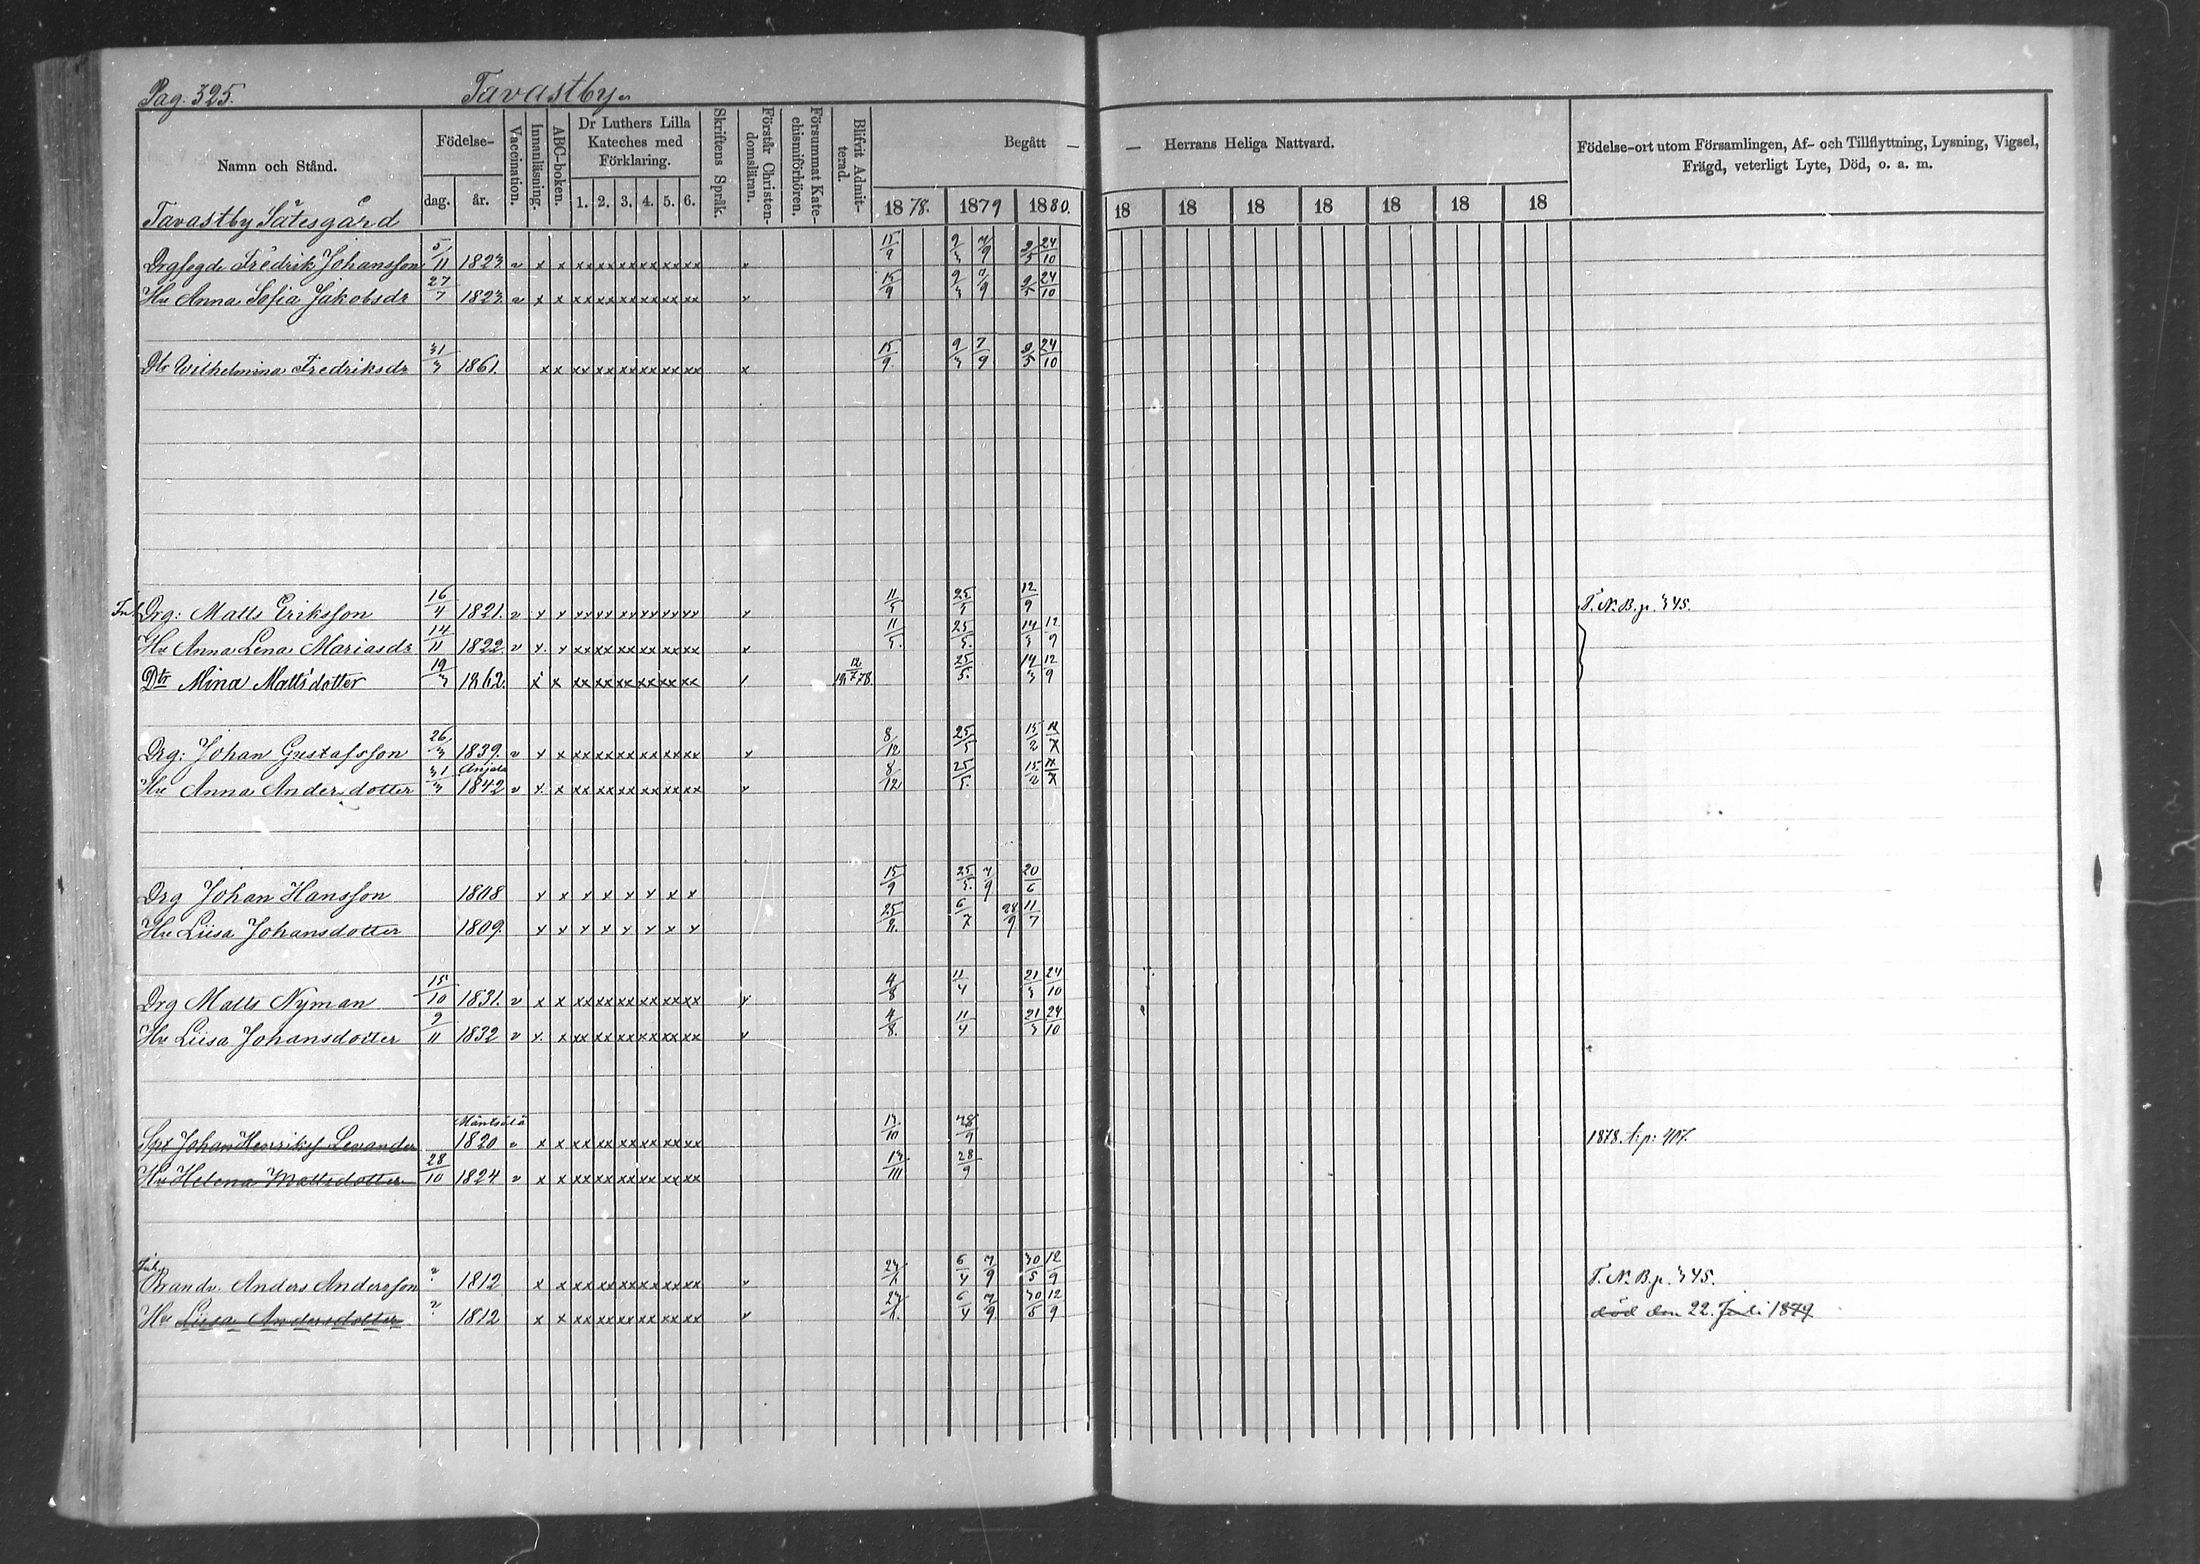 Pag. 325. Tavastby.
Namn och Stånd. Födelse- dag. år. Vaccination. Innanläsning. ABC-boken. Dr Luthers Lilla Kateches med Förklaring. 1. 2. 3. 4. 5. 6. Skriftens Språk. Förstår Christen-domsläran. Försummat Kate-chismiförhören. Blifvit Admit-terad. Begått — — Herrans Heliga Nattvard. Födelse-ort utom Församlingen, Af- och Tillflyttning, Lysning, Vigsel, Frägd, veterligt Lyte, Död, o. a. m.
1878. 1879 1880. 18 18 18 18 18 18 18
Tavastby Sätesgård
Drgfogde Fredrik Johansson 5/11 1823. v x x xx xx xx xx xx xx x 15/9 9/3 7/9 9/5 24/10
Hu Anna Sofia Jakobsdr 27/7 1823. v x x xx xx xx xx xx xx x 15/9 9/3 7/9 9/5 24/10
Dtr Wilhelmina Fredriksdr 31/3 1861. x x xx xx xx xx xx xx x 15/9. 9/3 7/9 9/5 24/10
Drg: Matts Eriksson 16/4 1821. v x x xx xx xx xx xx xx x 11/5 25/5 12/9 T. N. B. p. 345.
Hu Anna Lena Mariasdr 14/11 1822 v x. x xx xx xx xx xx xx x 11/5. 25/5. 14/3 12/9
Dtr Mina Mattsdotter 19/3 1862. x x xx xx xx xx xx xx / 25/5. 14/3 12/9
Drg: Johan Gustafsson 26/3 1839. v x x xx xx xx xx xx xx x 8/12 25/5 15/2
Anjala
Hu Anna Andersdotter 31/3 1842 v x. x xx xx xx xx xx xx x 8/12 25/5. 15/2
Drg Johan Hansson 1808 x x x x x x x x 15/9 25/5. 7/9 20/6
Hu Liisa Johansdotter 1809. x x x x x x x x 6/7 28/9 11/7
Drg Matts Nyman 15/10 1831. v x x xx xx xx xx xx xx x 4/8 11/4 21/3 24/10
Hu Liisa Johansdotter 9/11 1832 v x. x xx xx xx xx xx xx x 4/8. 11/4 21/3 24/10
Mäntsälä
Johan Henriks Levander 1820 v x x xx xx xx xx xx xx 13/10 28/9 1878 A: p: 407.
Hu Helena Mattsdotter 28/10 1824 v x x xx xx xx xx xx xx 28/9
Brandv. Anders Andersson ? 1812 x x xx xx xx xx xx xx x 6/4 7/9 30/5 12/9 T. N. B. p. 345.
Hu Liisa Andersdotter ? 1812 x x xx xx xx xx xx xx x 6/4 7/9. 30/5 12/9 död den 22. Juli 1879